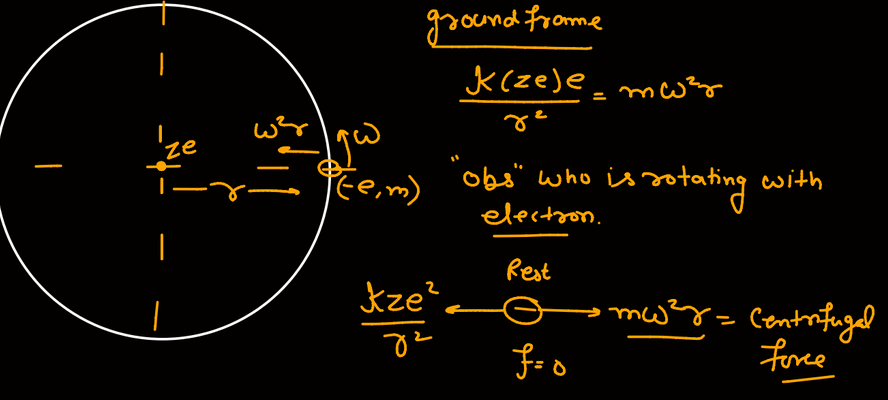 ground frame
K(ze)e / r² = mω²r
ze
ω²r
ω
r
(-e, m)
"obs" who is rotating with
electron.
Rest
kze² / r²
mω²r = Centrifugal
force
f=0